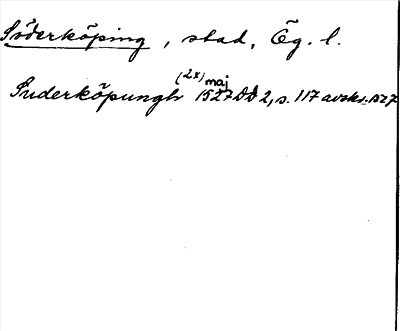 Söderköping, stad, Ög. l.
(2x)
Suderköpungh maj 1527 DD 2, s. 117 avskr. 1527